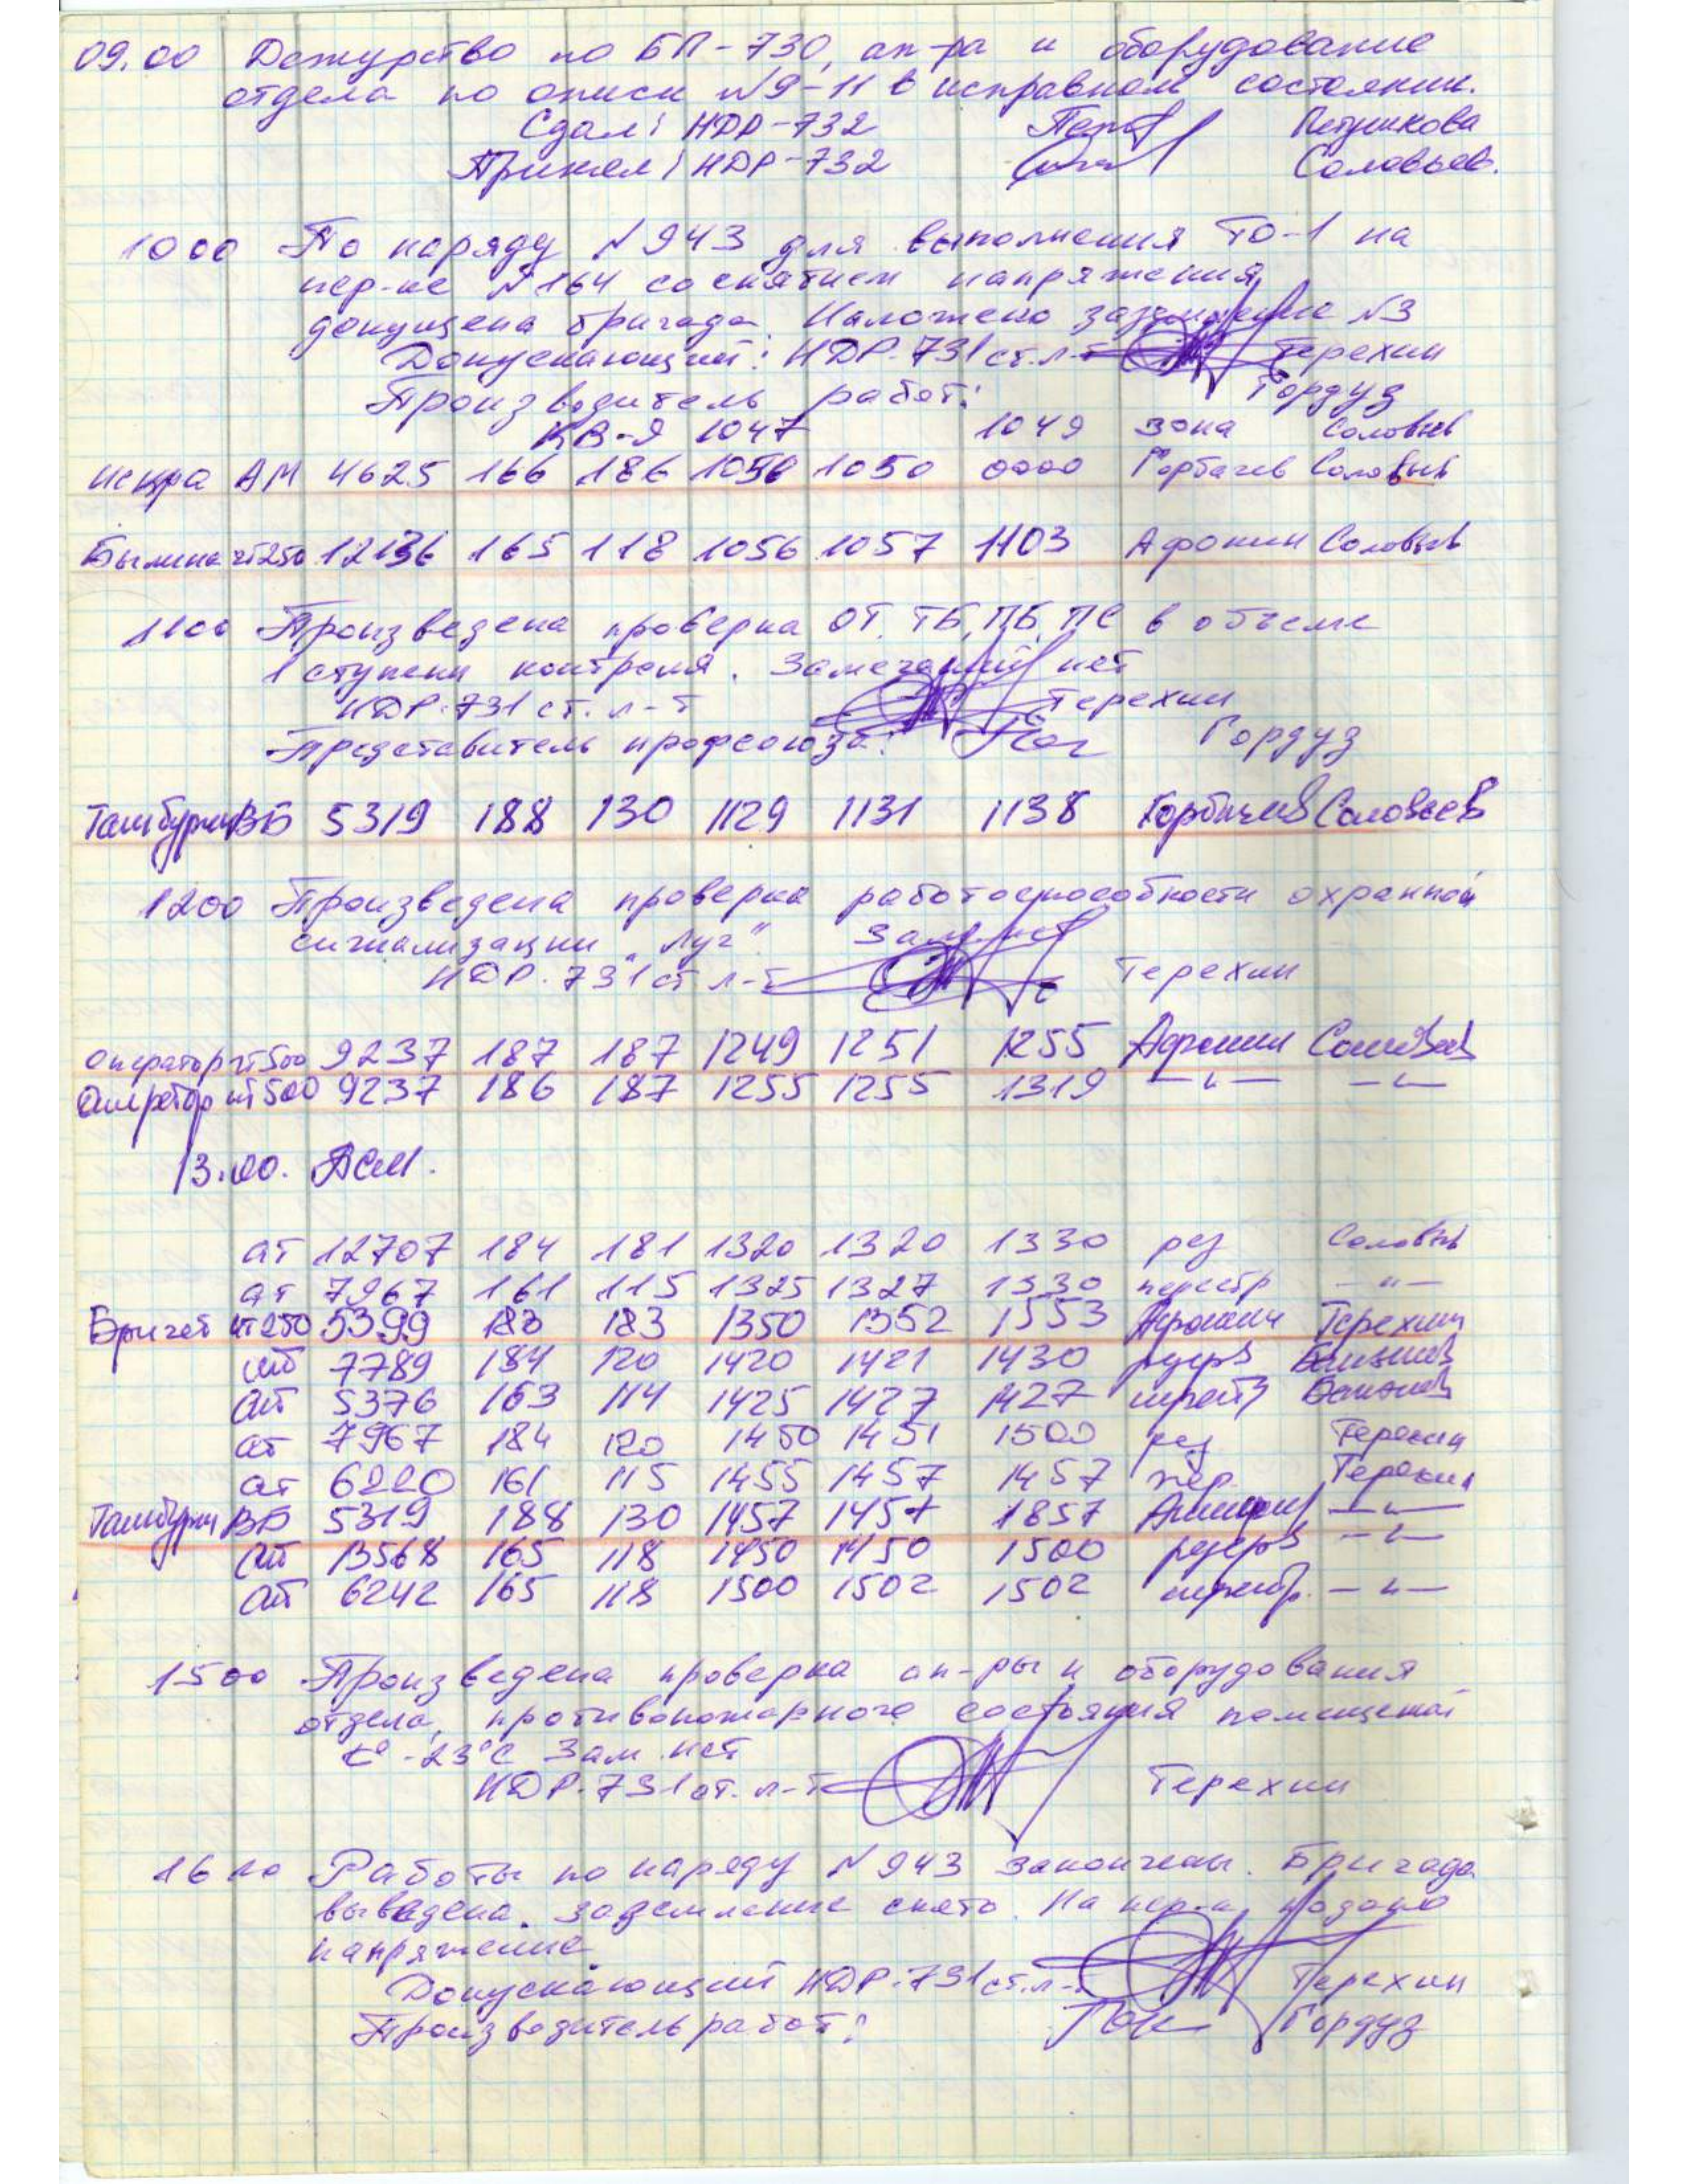 09.00 Дежурство по БП-730, ап-ра и оборудование
отдела по описи №9-11 в исправном состоянии.
Сдал: НДР-732 Петрушкова
Принял: НДР-732 Соловьев.
1000 По наряду №943 для выполнения ТО-1 на
пер-ке №164 со снятием напряжения
допущена бригада. Наложено заземление №3
Допускающий: НДР-731 ст. л-т Терехин
Производитель работ: Гордуз
КВ-Я 1047 1049 зона Соловьев
Искра АМ 4625 166 186 1050 1050 0000 Горбачев Соловьев
Былина чт250 12136 165 118 1056 1057 1103 Афонин Соловьев
1100 Произведена проверка ОТ, ТБ, ПБ, ПС в объеме
1 ступени контроля. Замечаний нет
НДР-731 ст. л-т Терехин
Представитель профсоюза: Гордуз
Тамбурин ВБ 5319 188 130 1129 1131 1138 Горбачев Соловьев
1200 Произведена проверка работоспособности охранной
сигнализации "Луг" Зам. нет
НДР-731 ст л-т Терехин
Оператор чт500 9237 187 187 1249 1251 1255 Афонин Соловьев
Оператор чт500 9237 186 187 1255 1255 1319 —〃— —〃—
13.00. АСМ.
ат 12707 184 181 1320 1320 1330 рез Соловьев
ат 7967 161 115 1325 1327 1330 перестр —〃—
чт250 5399 183 183 1350 1352 1553 Афонин Терехин
ат 7789 184 120 1420 1421 1430 резерв
ат 5376 163 114 1425 1427 1427
ат 7967 184 120 1450 1451 1500 рез Терехин
ат 6220 161 115 1455 1457 1457 пер. Терехин
Тамбурин ВБ 5319 188 130 1457 1457 1857 —〃—
ат 13568 165 118 1450 1450 1500 резерв —〃—
ат 6242 165 118 1500 1502 1502 перестр. —〃—
1500 Произведена проверка ап-ры и оборудования
отдела, противопожарного состояния помещений
t° -23°С Зам. нет
НДР-731 ст. л-т Терехин
16 10 Работы по наряду №943 закончены. Бригада
выведена. Заземление снято. На пер-к подано
напряжение
Допускающий НДР-731 ст. л-т Терехин
Производитель работ: Гордуз